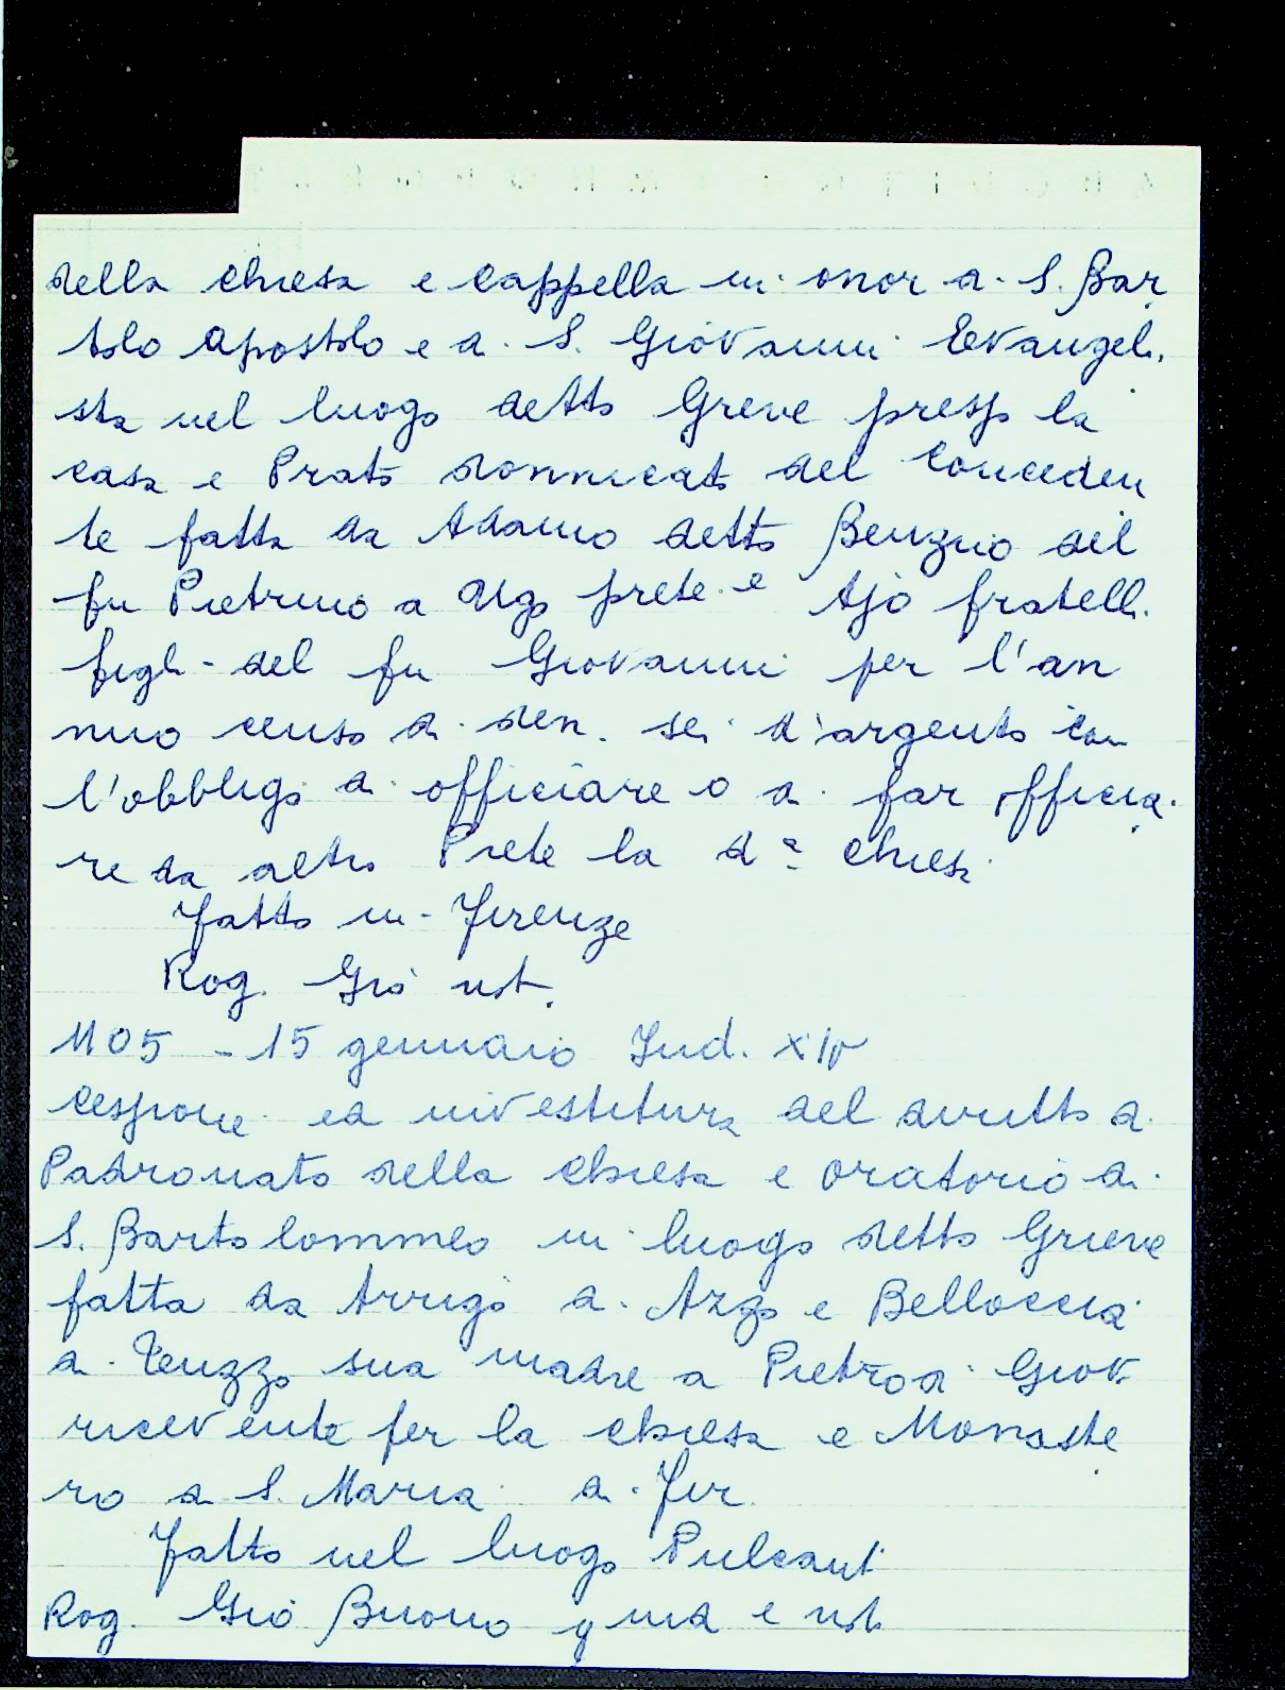 della chiesa e cappella in onor di S. Bar
tolo apostolo e di S. Giovanni Evangeli
sta nel luogo detto Greve presso la
casa e Prato donnicato del conceden
te fatta da Adamo detto Benzino del
fu Pietrino a Ugo prete e Ajo fratelli
figli del fu Giovanni per l'an
nuo censo di den. sei d'argento con
l'obbligo di officiare o di far officia
re da altro Prete la da chiesa
Fatto in Firenze
Rog. Gio not.
1105 - 15 gennaio Ind. XIV
Cessione ed investitura del diritto di
Padronato della chiesa e oratorio di
S. Bartolommeo in luogo detto Grieve
fatta da Arrigo di Azzo e Belloccia
di Teuzzo sua madre a Pietro di Giov.
ricevente per la chiesa e Monaste
ro di S. Maria di Fir.
Fatto nel luogo Pulcanti
Rog. Gio Buono giud e not